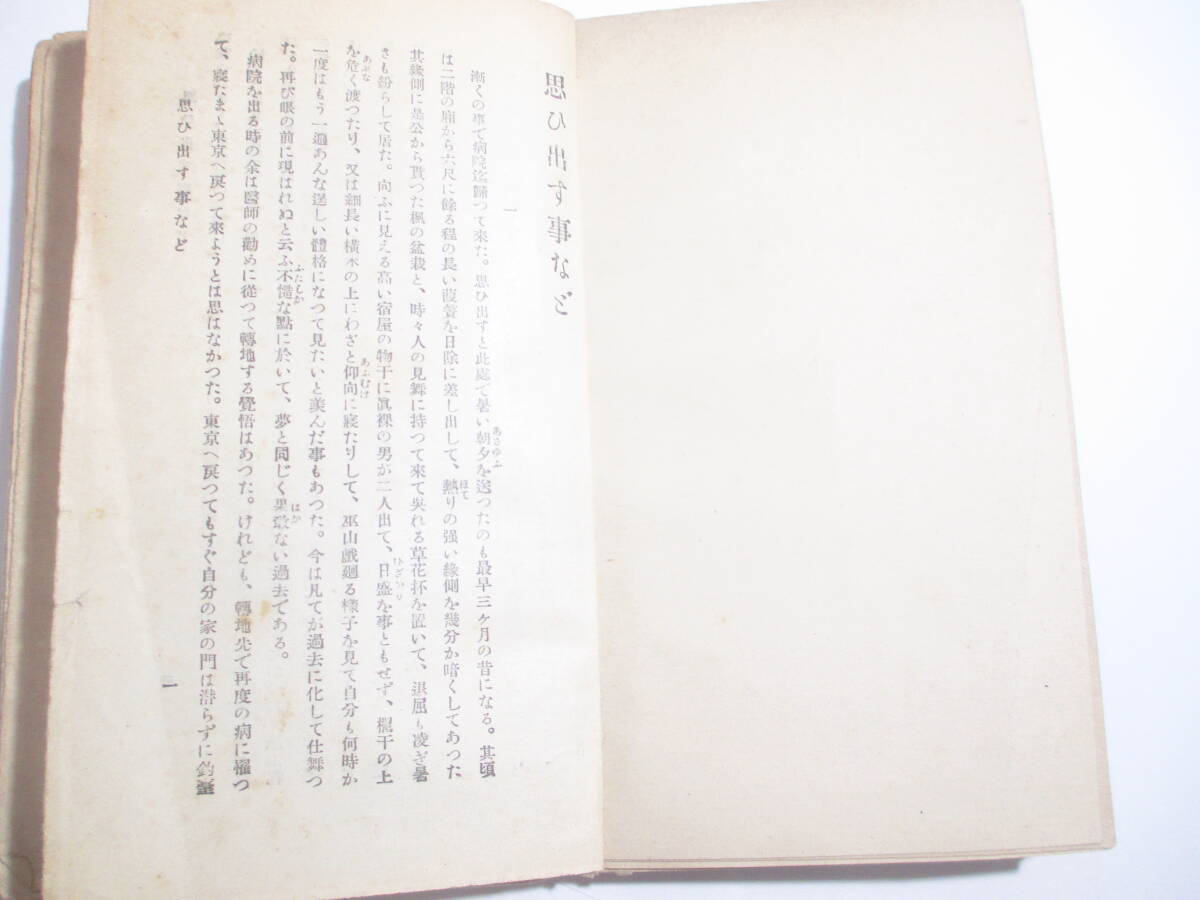 思ひ出す事など
一
漸くの事で病院迄歸つて來た。思ひ出すと此處で暑い朝夕を送つたのも最早三ケ月の昔になる。其頃
あさゆふ
は二階の廂から六尺に餘る程の長い葭簀を日除に差し出して、熱りの强い緣側を幾分か暗くしてあつた
ほて
其緣側に是公から貰つた楓の盆栽と、時々人の見舞に持つて來て吳れる草花抔を置いて、退屈も凌ぎ暑
さも紛らして居た。向ふに見える高い宿屋の物干に眞裸の男が二人出て、日盛を事ともせず、欄干の上
ひざかり
を危く渡つたり、又は細長い橫木の上にわざと仰向に寢たりして、巫山戲廻る樣子を見て自分も何時か
あぶな
あふむけ
一度はもう一遍あんな逞しい體格になつて見たいと羨んだ事もあつた。今は凡てが過去に化して仕舞つ
た。再び眼の前に現はれぬと云ふ不慥な點に於いて、夢と同じく果敢ない過去である。
ふたしか
はか
病院を出る時の余は醫師の勸めに從つて轉地する覺悟はあつた。けれども、轉地先で再度の病に罹つ
て、寢たまゝ東京へ戾つて來ようとは思はなかつた。東京へ戾つてもすぐ自分の家の門は潜らずに釣臺
思ひ出す事など
一